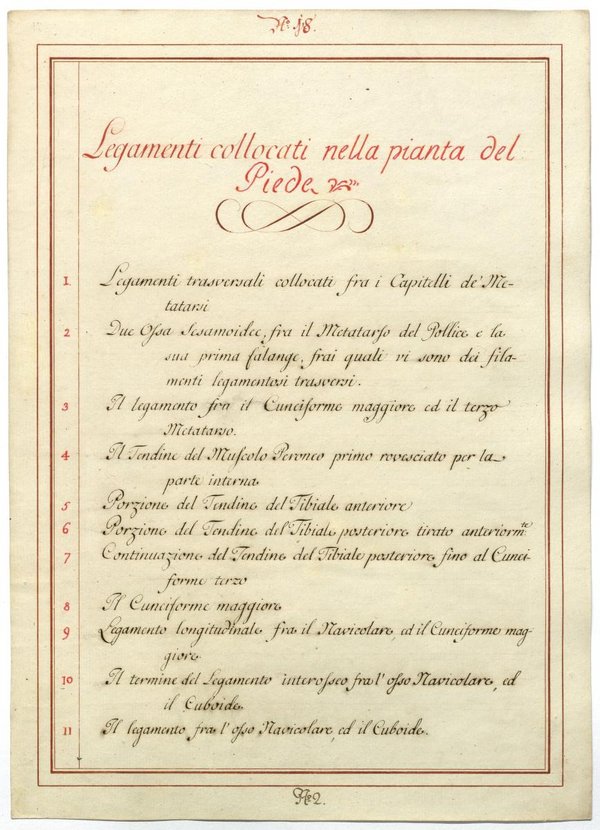 N.º 18.
Legamenti collocati nella pianta del
Piede
1. Legamenti trasversali collocati fra i Capitelli de' Me-
tatarsi
2 Due Ossa Sesamoidee, fra il Metatarso del Pollice e la
sua prima falange, frai quali vi sono dei fila-
menti legamentosi trasversi.
3 Il legamento fra il Cuneiforme maggiore ed il terzo
Metatarso.
4 Il Tendine del Muscolo Peroneo primo rovesciato per la
parte interna
5 Porzione del Tendine del Tibiale anteriore
6 Porzione del Tendine del Tibiale posteriore tirato anteriorm.te
7 Continuazione del Tendine del Tibiale posteriore fino al Cunei-
forme terzo
8 Il Cuneiforme maggiore
9 Legamento longitudinale fra il Navicolare, ed il Cuneiforme mag-
giore.
10 Il termine del Legamento interosseo fra l'osso Navicolare, ed
il Cuboide.
11 Il legamento fra l'osso Navicolare, ed il Cuboide.
N.º 2.